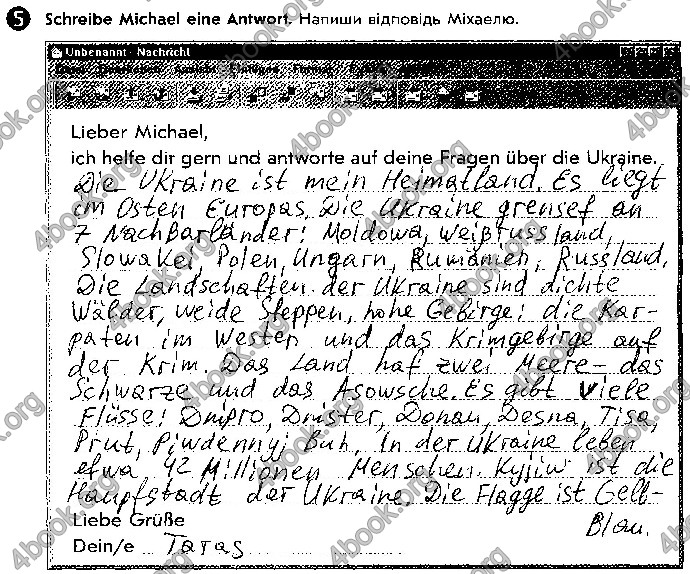 5 Schreibe Michael eine Antwort. Напиши відповідь Міхаелю.
Unbenannt - Nachricht
Lieber Michael,
ich helfe dir gern und antworte auf deine Fragen über die Ukraine.
Die Ukraine ist mein Heimatland. Es liegt
im Osten Europas. Die Ukraine grenset an
7 Nachbarländer: Moldowa, Weißrussland,
Slowakei, Polen, Ungarn, Rumänien, Russland.
Die Landschaften der Ukraine sind dichte
Wälder, weide Steppen, hohe Gebirge: die Kar-
paten im Westen und das Krimgebirge auf
der Krim. Das Land hat zwei Meere - das
Schwarze und das Asowsche. Es gibt viele
Flüsse: Dnipro, Dnister, Donau, Desna, Tisa,
Prut, Piwdennyj Buh. In der Ukraine leben
etwa 42 Millionen Menschen. Kyjiw ist die
Hauptstadt der Ukraine. Die Flagge ist Gelb-
Blau.
Liebe Grüße
Dein/e Taras
4book.org